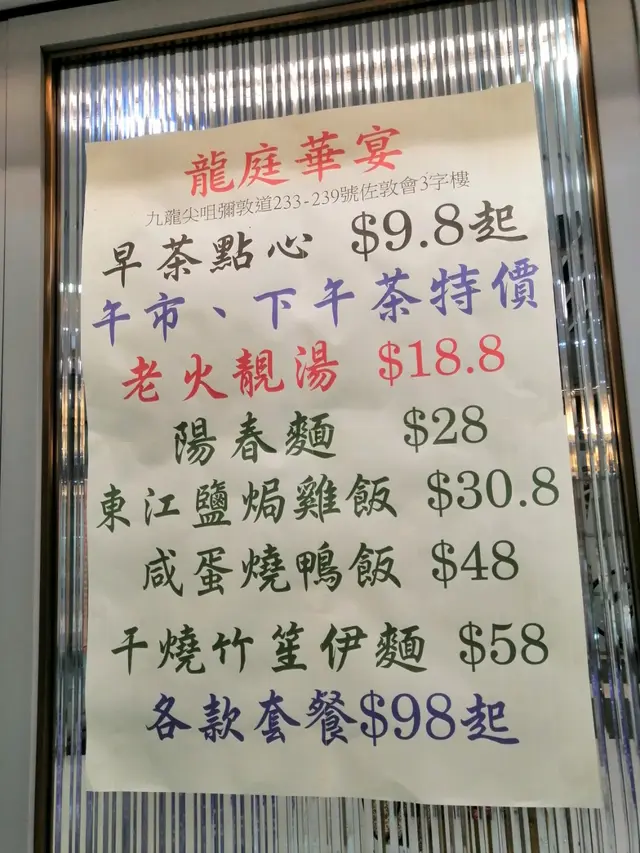 龍庭華宴
九龍尖咀彌敦道233-239號佐敦會3字樓
早茶點心 $9.8起
午市、下午茶特價
老火靚湯 $18.8
陽春麵 $28
東江鹽焗雞飯 $30.8
咸蛋燒鴨飯 $48
干燒竹笙伊麵 $58
各款套餐$98起